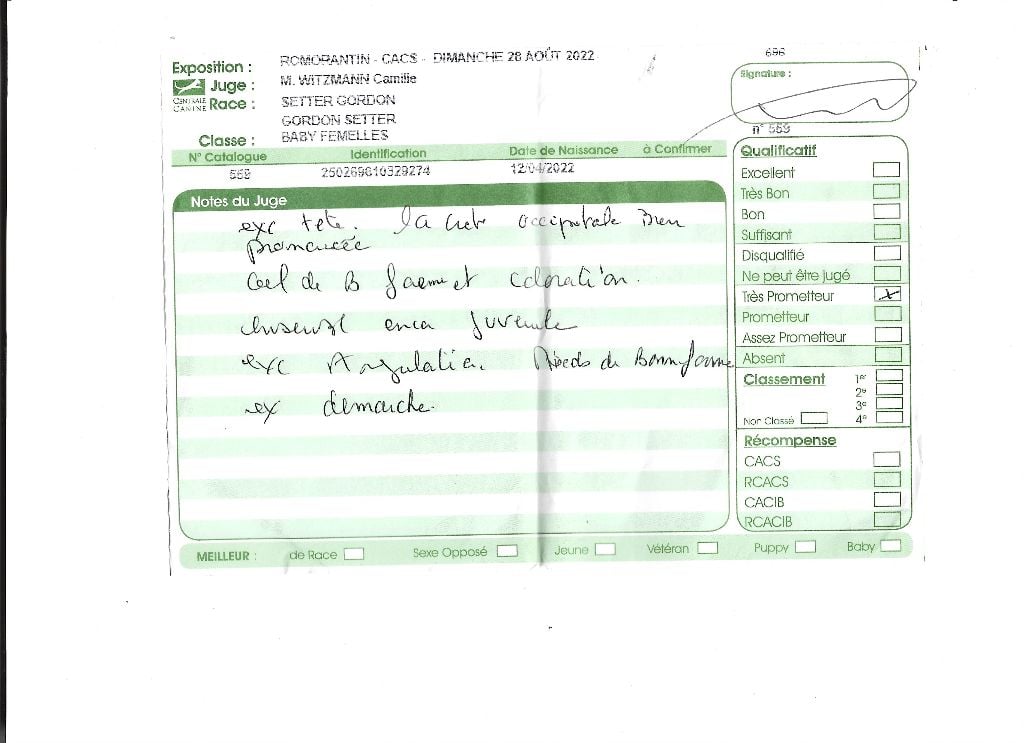 Exposition : ROMORANTIN - CACS - DIMANCHE 28 AOÛT 2022
696
CENTRALE CANINE
Juge : M. WITZMANN Camille
Race : SETTER GORDON
GORDON SETTER
Classe : BABY FEMELLES
Signature :
n° 569
N° Catalogue Identification Date de Naissance à Confirmer
569 250269810329274 12/04/2022
Notes du Juge
exc tete. la crete occipitale Bien
prononcée
Oeil de B forme et coloration.
encor juvenile
exc Angulation. Pieds de Bonne forme
ex demarche.
Qualificatif
Excellent
Très Bon
Bon
Suffisant
Disqualifié
Ne peut être jugé
Très Prometteur
Prometteur
Assez Prometteur
Absent
Classement 1er
2e
3e
Non Classé 4e
Récompense
CACS
RCACS
CACIB
RCACIB
MEILLEUR : de Race Sexe Opposé Jeune Vétéran Puppy Baby